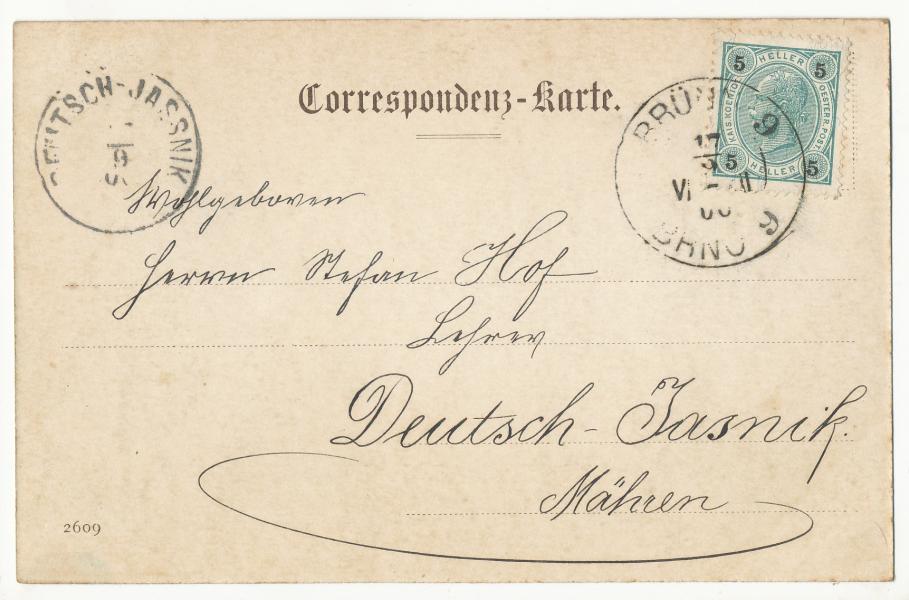 Correspondenz-Karte.
DEUTSCH-JASSNIK
9
5
5
HELLER
5
KAIS. KOENIGL.
OESTERR. POST.
5
HELLER
5
BRÜNN 9
17
BRNO 9
Wohlgeboren
Herrn Stefan Hof
Lehrer
Deutsch-Jasnik.
Mähren
2609